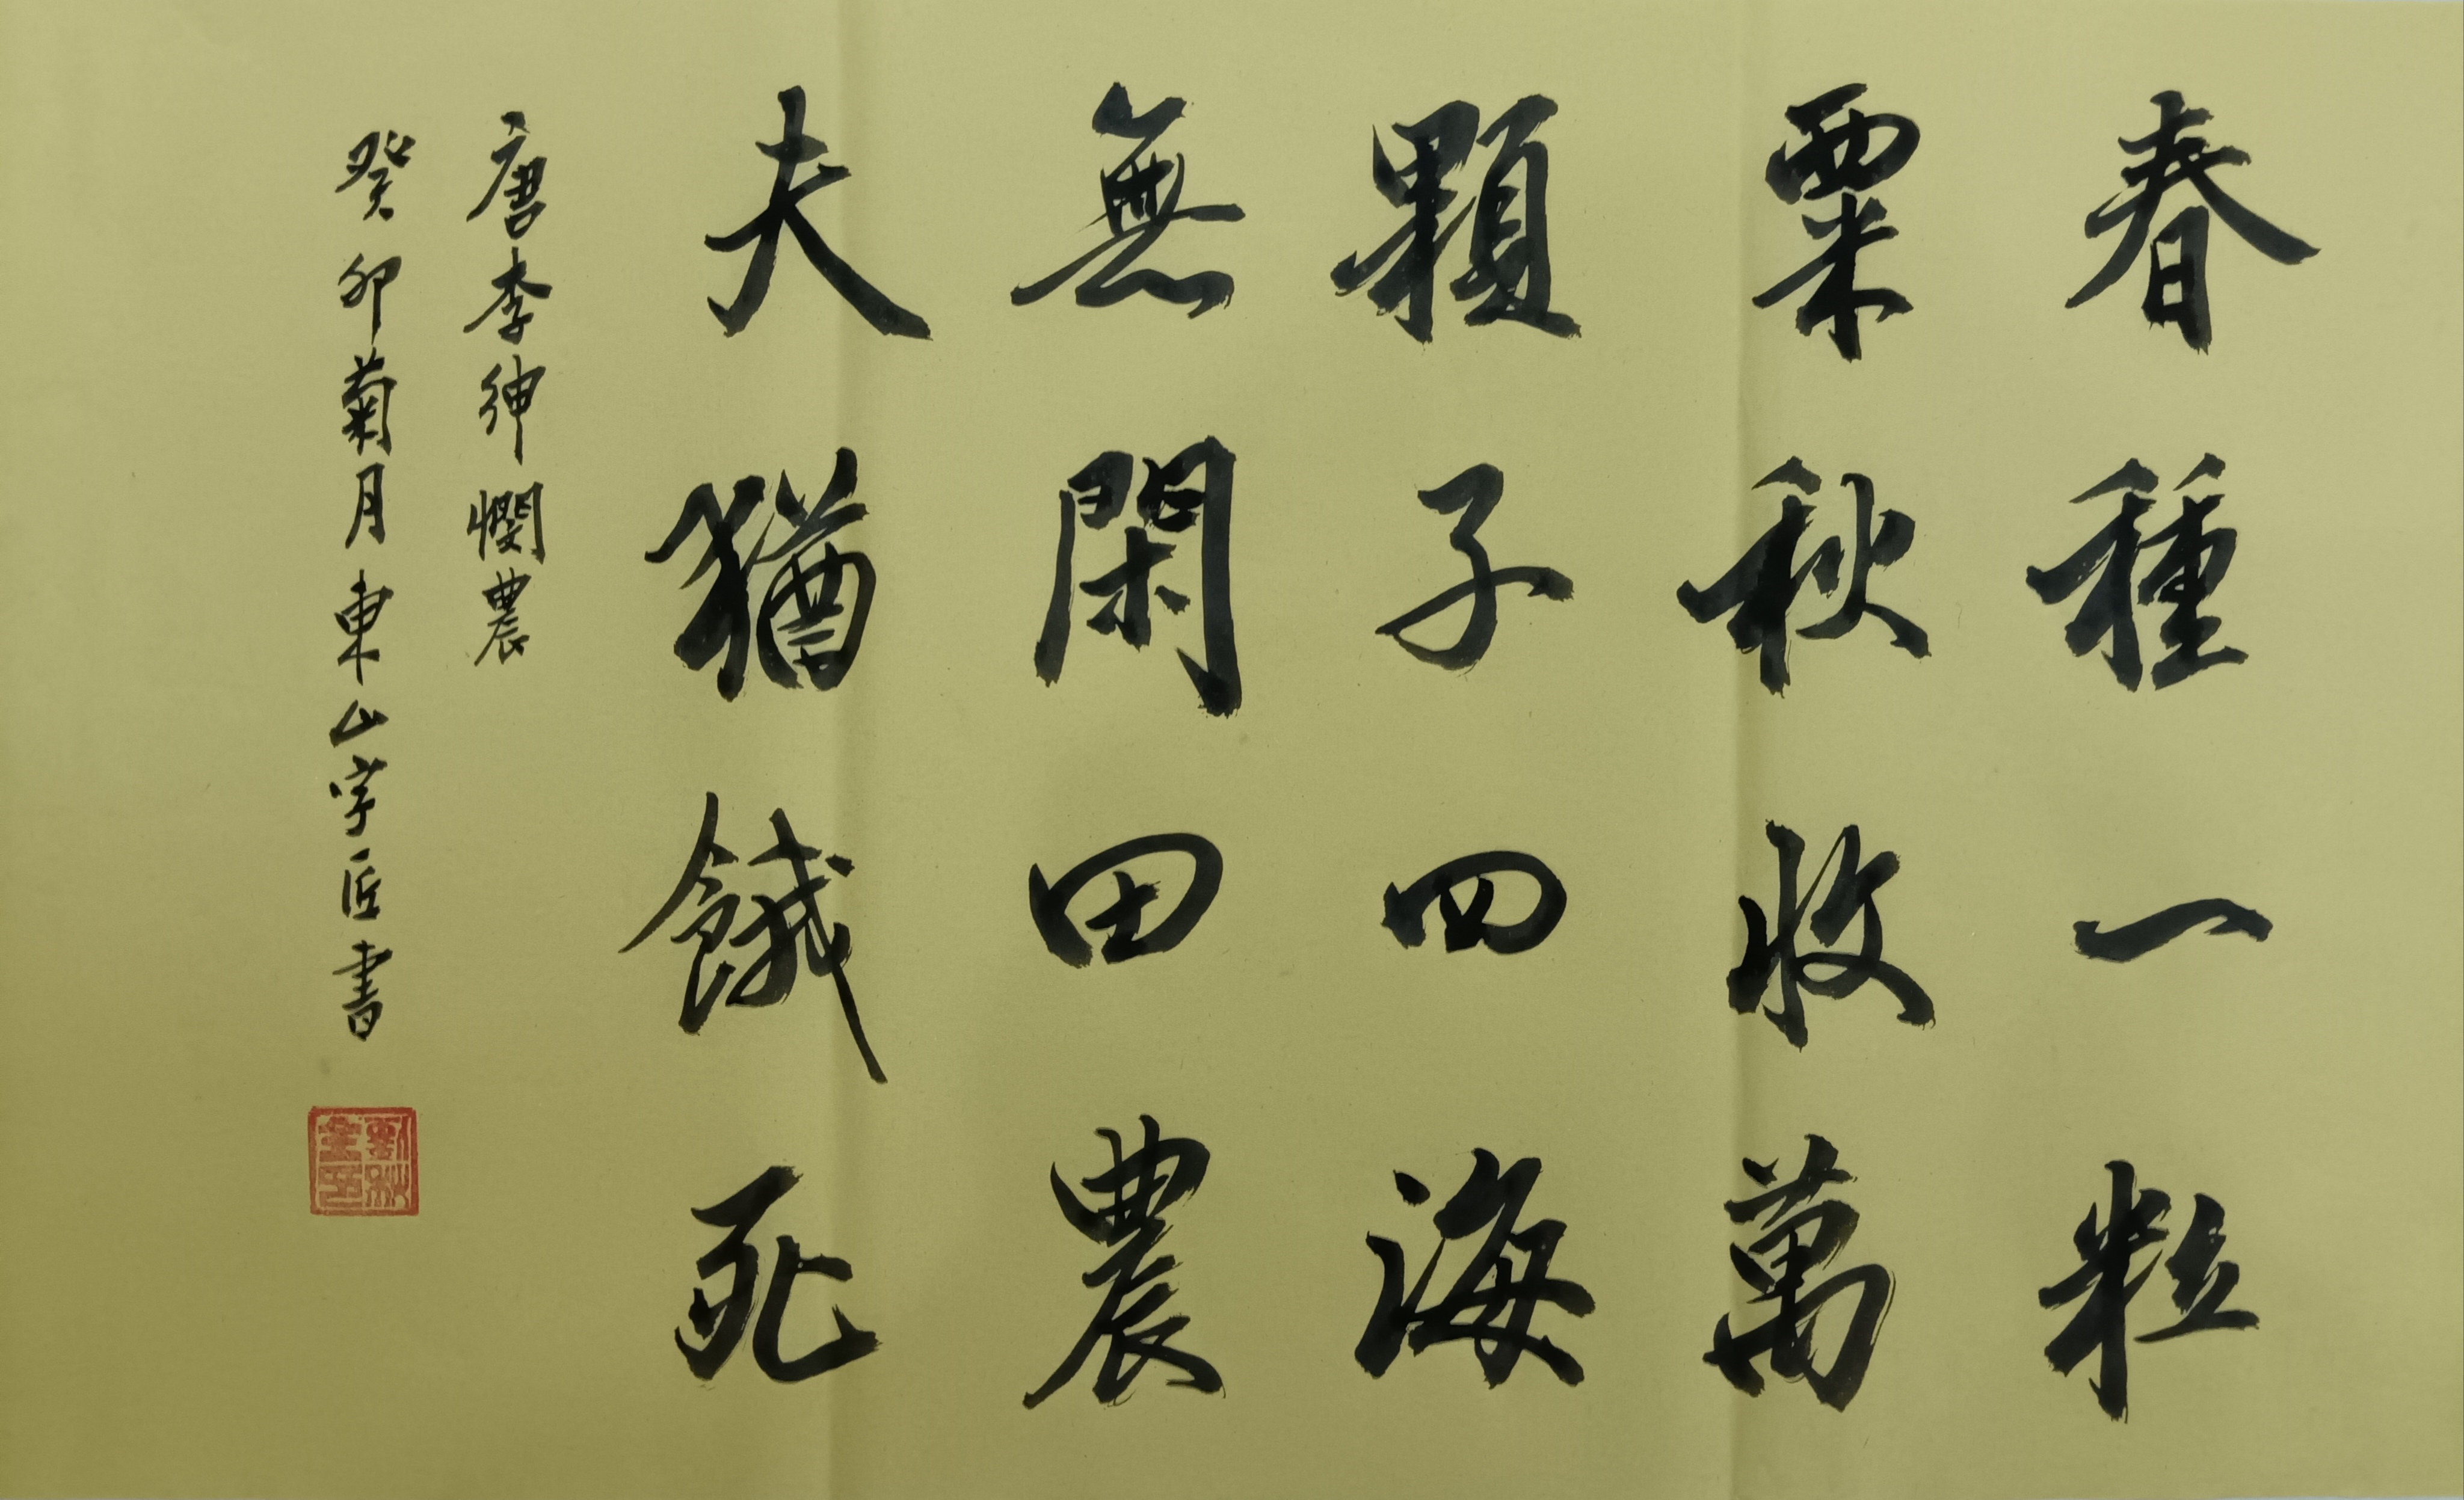 春種一粒
粟秋收萬
顆子四海
無閑田農
夫猶餓死
唐李紳憫農
癸卯菊月東山字匠書